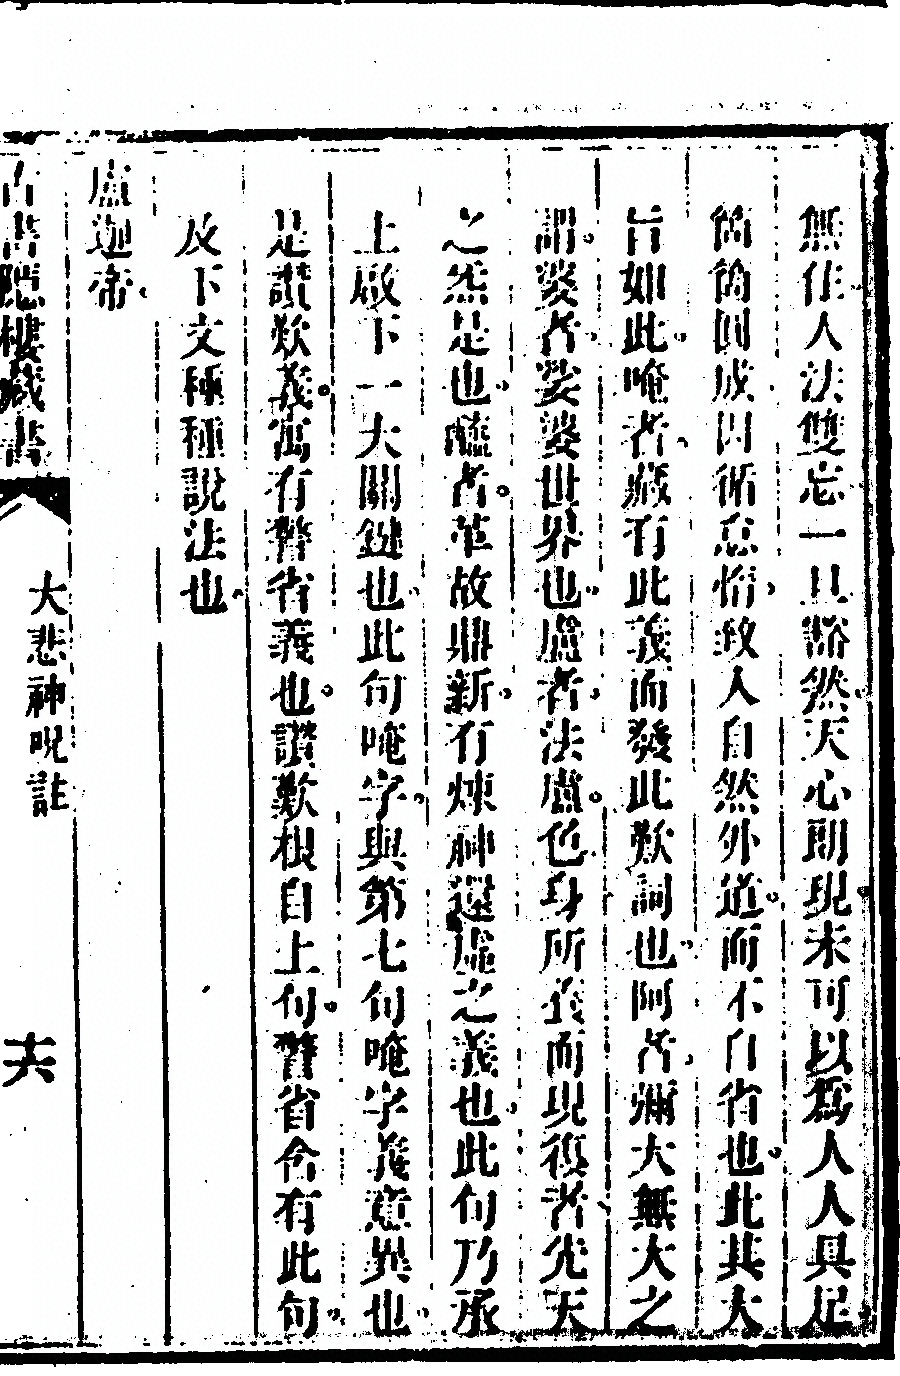 無作人法雙忘一旦豁然天心朗現未可以為人人具足
箇箇圓成因循怠惰致人自然外道而不自省也此其大
旨如此唵者藏有此義而發此歎詞也阿者彌大無大之
謂婆者娑婆世界也盧者法盧色身所義而現復者先天
之炁是也醯者革故鼎新有煉神還虛之義也此句乃承
上啟下一大關鍵也此句唵字與第七句唵字義意異也
是讚歎義寓有警省義也讚歎根自上句警省含有此句
及下文種種說法也
盧迦帝
古書隱樓藏書
大悲神呪註
十六